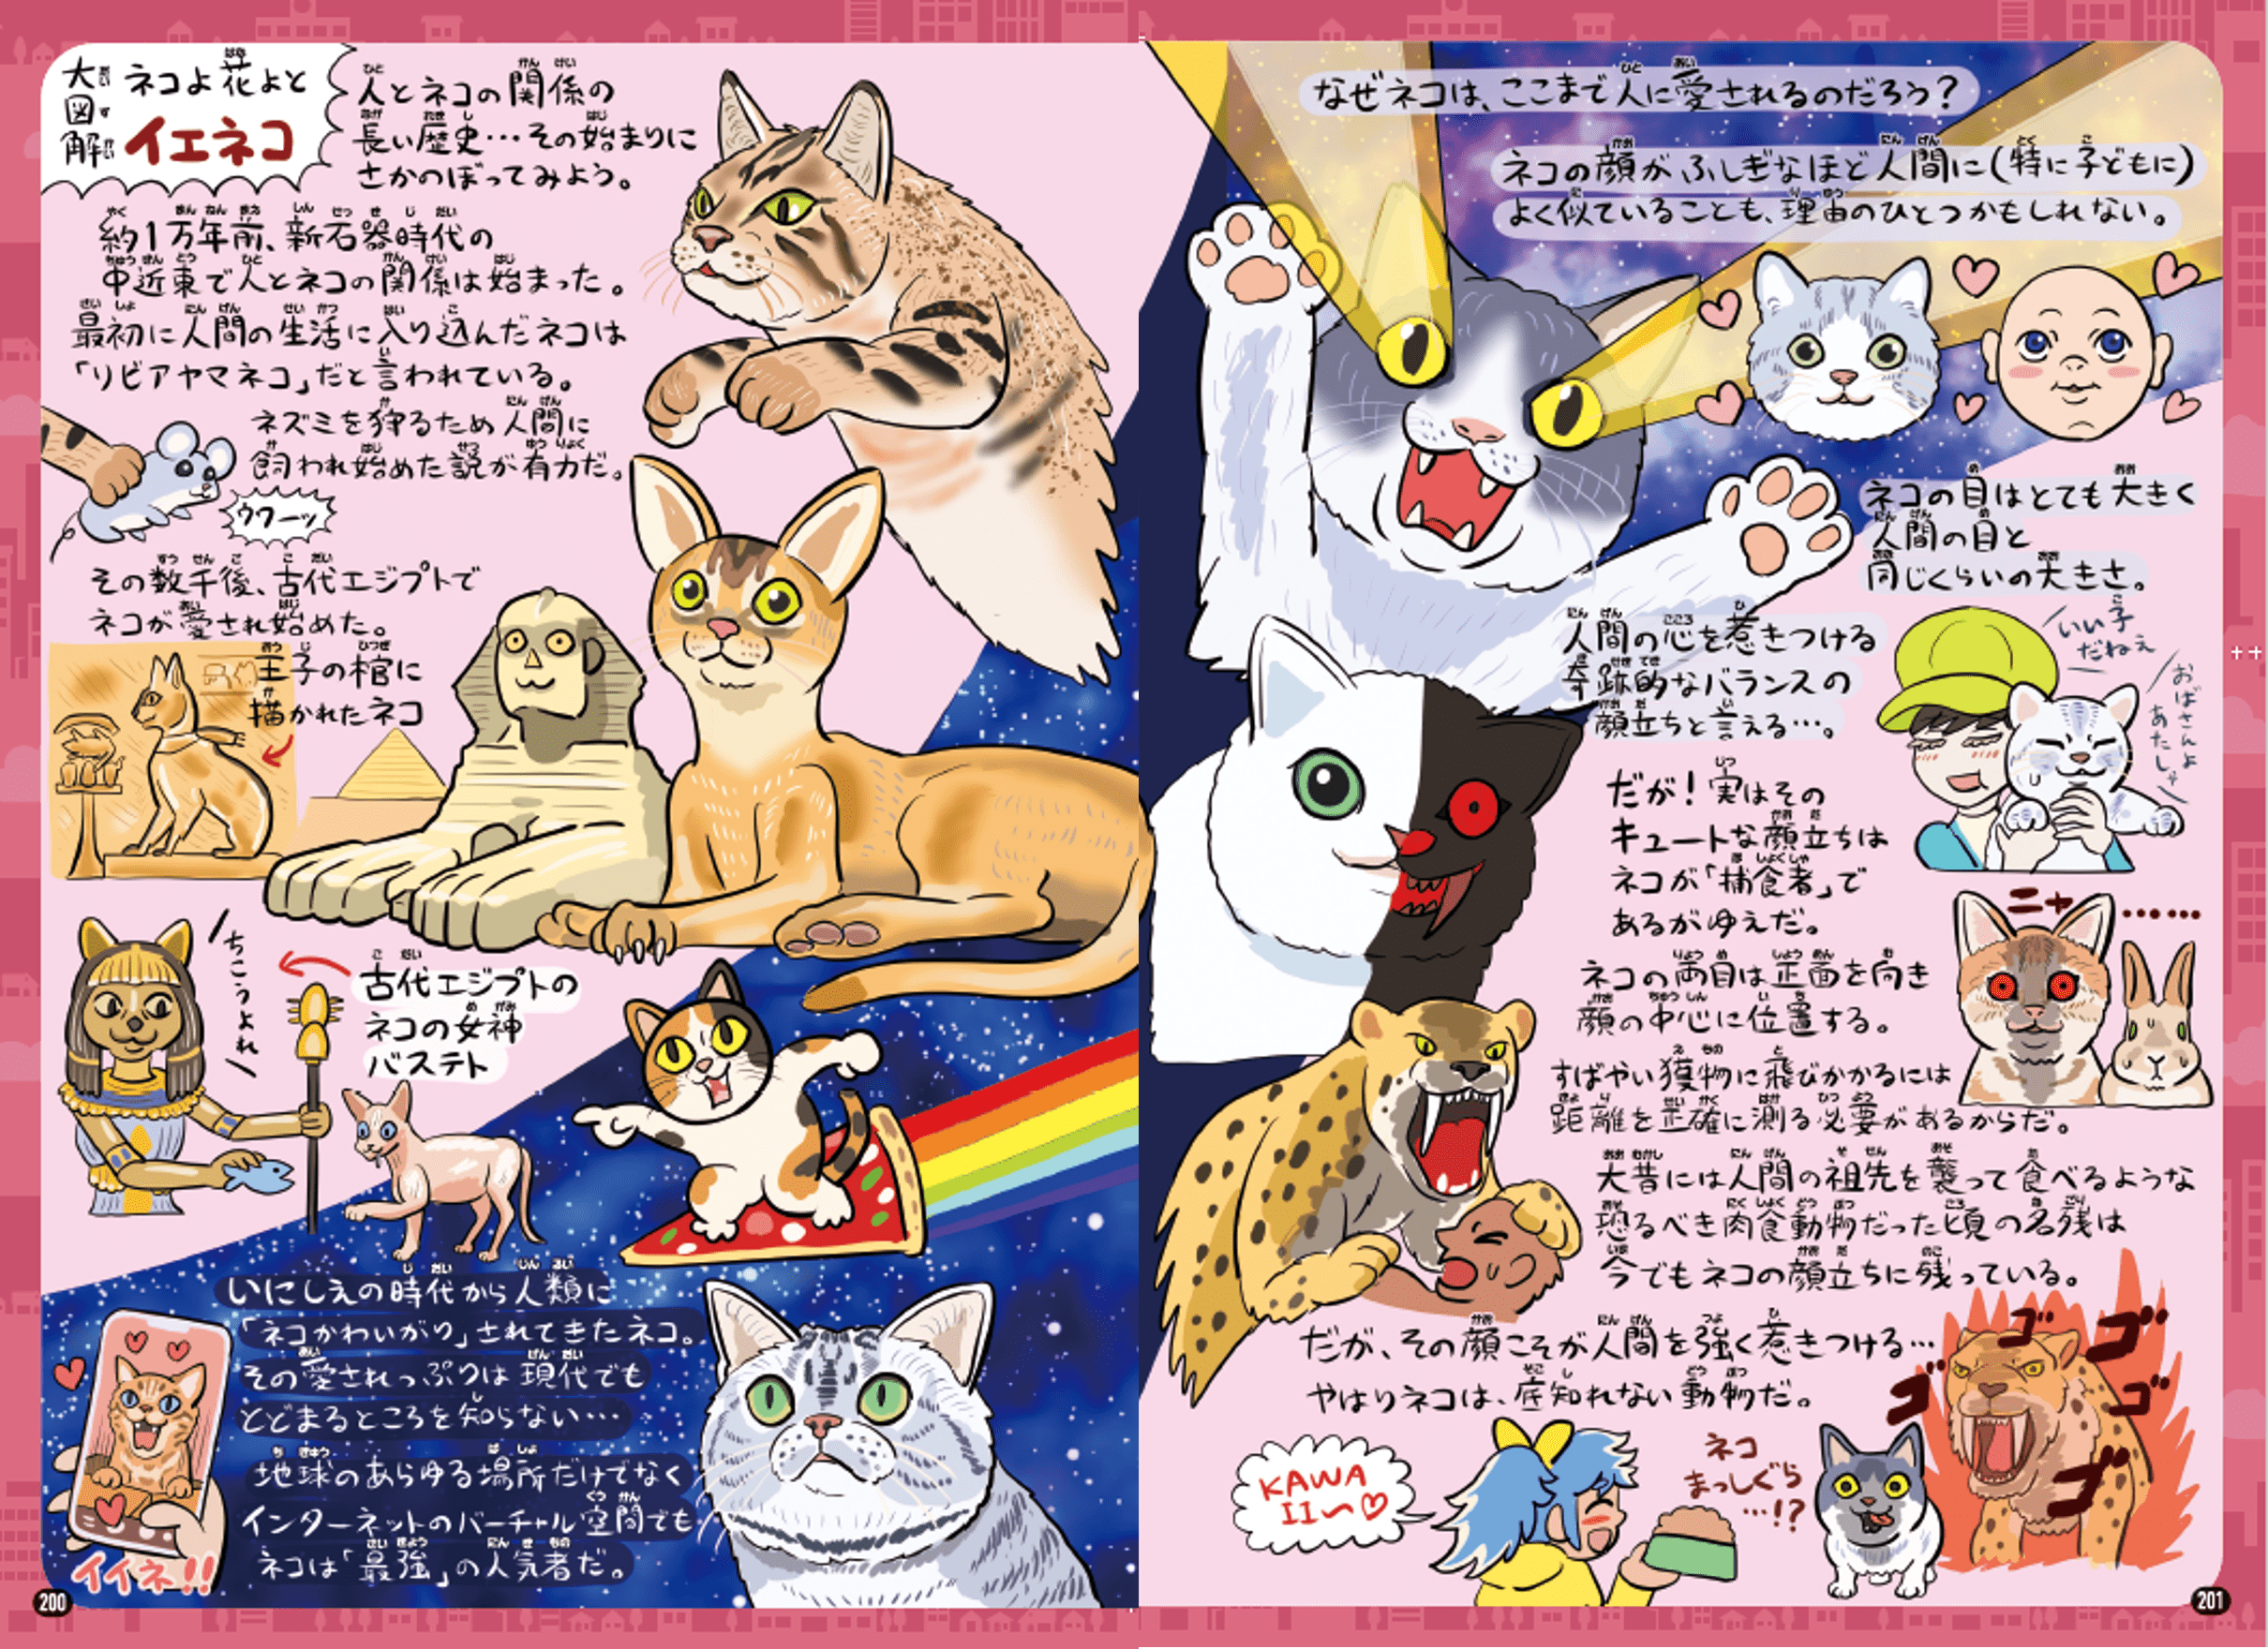 大図解
ネコよ花よと
イエネコ
人とネコの関係の
長い歴史…その始まりに
さかのぼってみよう。
約1万年前、新石器時代の
中近東で人とネコの関係は始まった。
最初に人間の生活に入り込んだネコは
「リビアヤマネコ」だと言われている。
ネズミを狩るため人間に
飼われ始めた説が有力だ。
ウワーッ
その数千後、古代エジプトで
ネコが愛され始めた。
王子の棺に
描かれたネコ
ちこうよれ
古代エジプトの
ネコの女神
バステト
いにしえの時代から人類に
「ネコかわいがり」されてきたネコ。
その愛されっぷりは現代でも
とどまるところを知らない…
地球のあらゆる場所だけでなく
インターネットのバーチャル空間でも
ネコは「最強」の人気者だ。
イイネ!!
200
なぜネコは、ここまで人に愛されるのだろう?
ネコの顔がふしぎなほど人間に(特に子どもに)
よく似ていることも、理由のひとつかもしれない。
ネコの目はとても大きく
人間の目と
同じくらいの大きさ。
人間の心を惹きつける
奇跡的なバランスの
顔立ちと言える…。
いい子
だねぇ
おばさんよ
あたしゃ
だが!実はその
キュートな顔立ちは
ネコが「捕食者」で
あるがゆえだ。
ニャ……
ネコの両目は正面を向き
顔の中心に位置する。
すばやい獲物に飛びかかるには
距離を正確に測る必要があるからだ。
大昔には人間の祖先を襲って食べるような
恐るべき肉食動物だった頃の名残は
今でもネコの顔立ちに残っている。
だが、その顔こそが人間を強く惹きつける…
やはりネコは、底知れない動物だ。
ゴゴゴゴゴ
KAWA
II〜♡
ネコ
まっしぐら
…!?
201